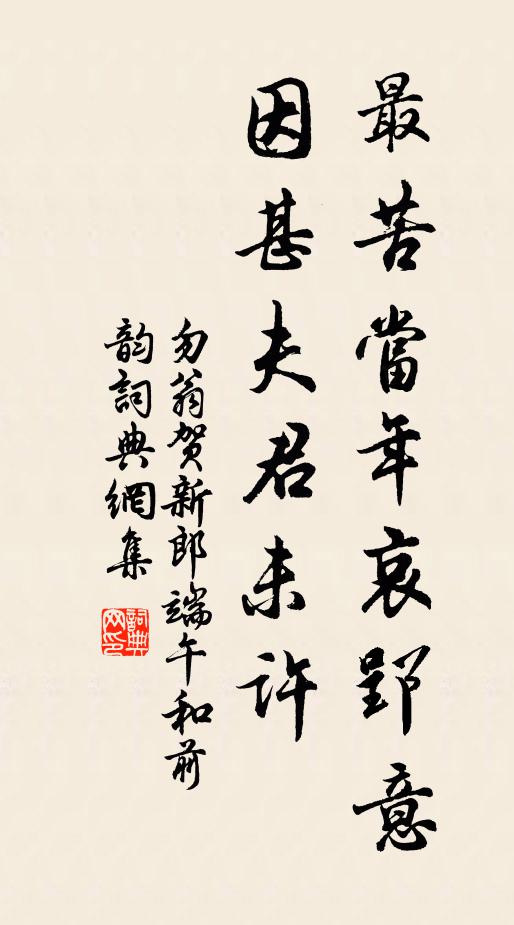 最苦當年哀郢意
因甚夫君未許
勿翁贺新郎端午和前
韵詞典網集
詞典網印